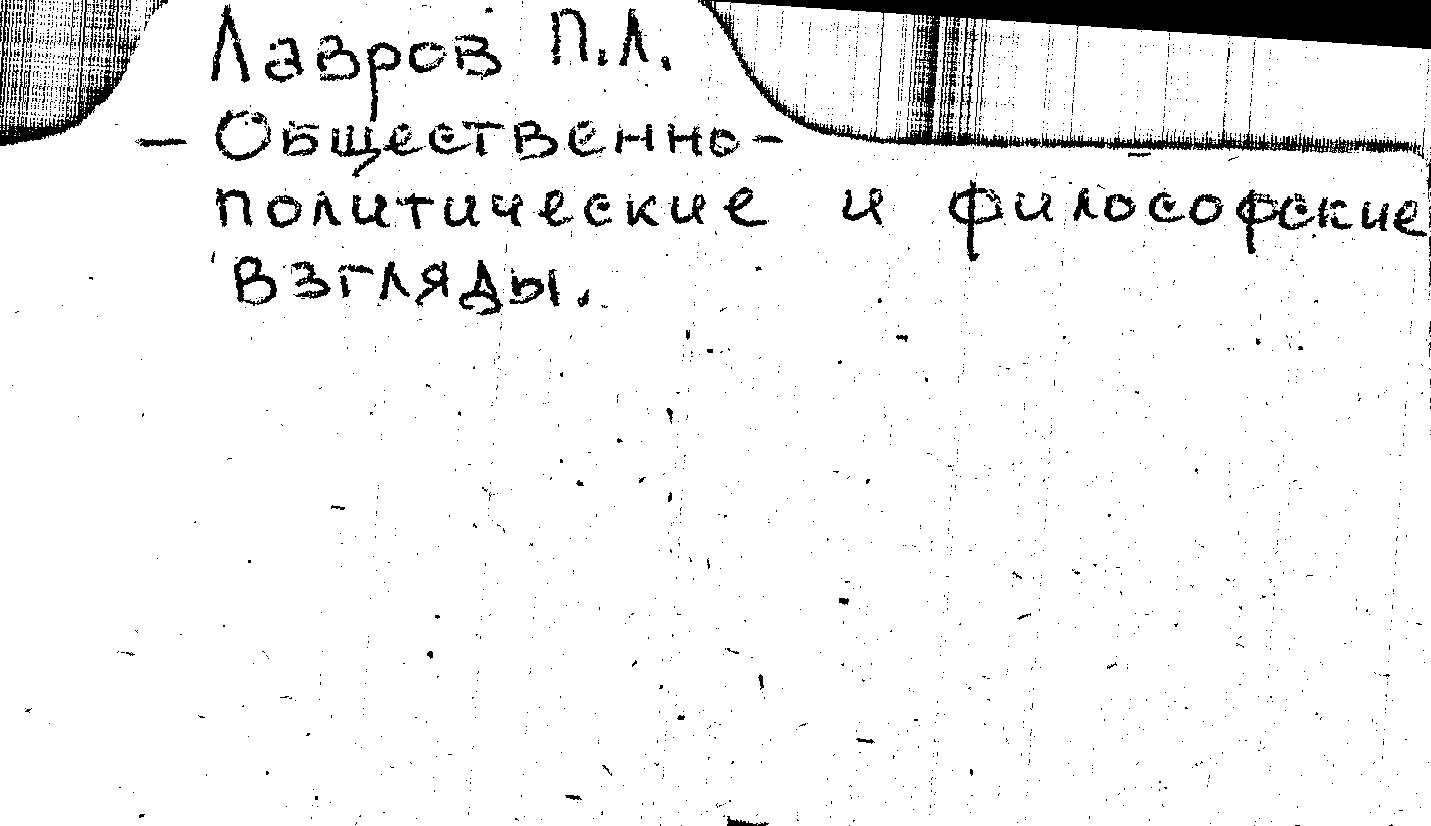 Лавров П.Л.
— Общественно-
политические и философские
взгляды.